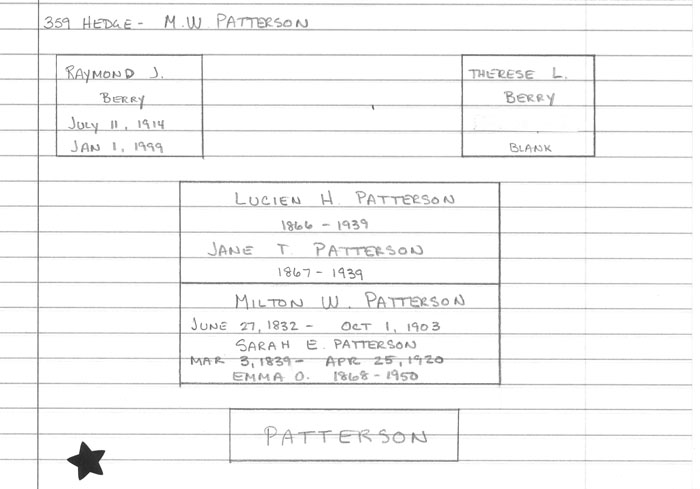 359 HEDGE - M.W. PATTERSON
RAYMOND J.
BERRY
JULY 11, 1914
JAN 1, 1999
THERESE L.
BERRY
BLANK
LUCIEN H. PATTERSON
1866 - 1939
JANE T. PATTERSON
1867 - 1939
MILTON W. PATTERSON
JUNE 27, 1832 - OCT 1, 1903
SARAH E. PATTERSON
MAR 3, 1839 - APR 25, 1920
EMMA O. 1868 - 1950
PATTERSON